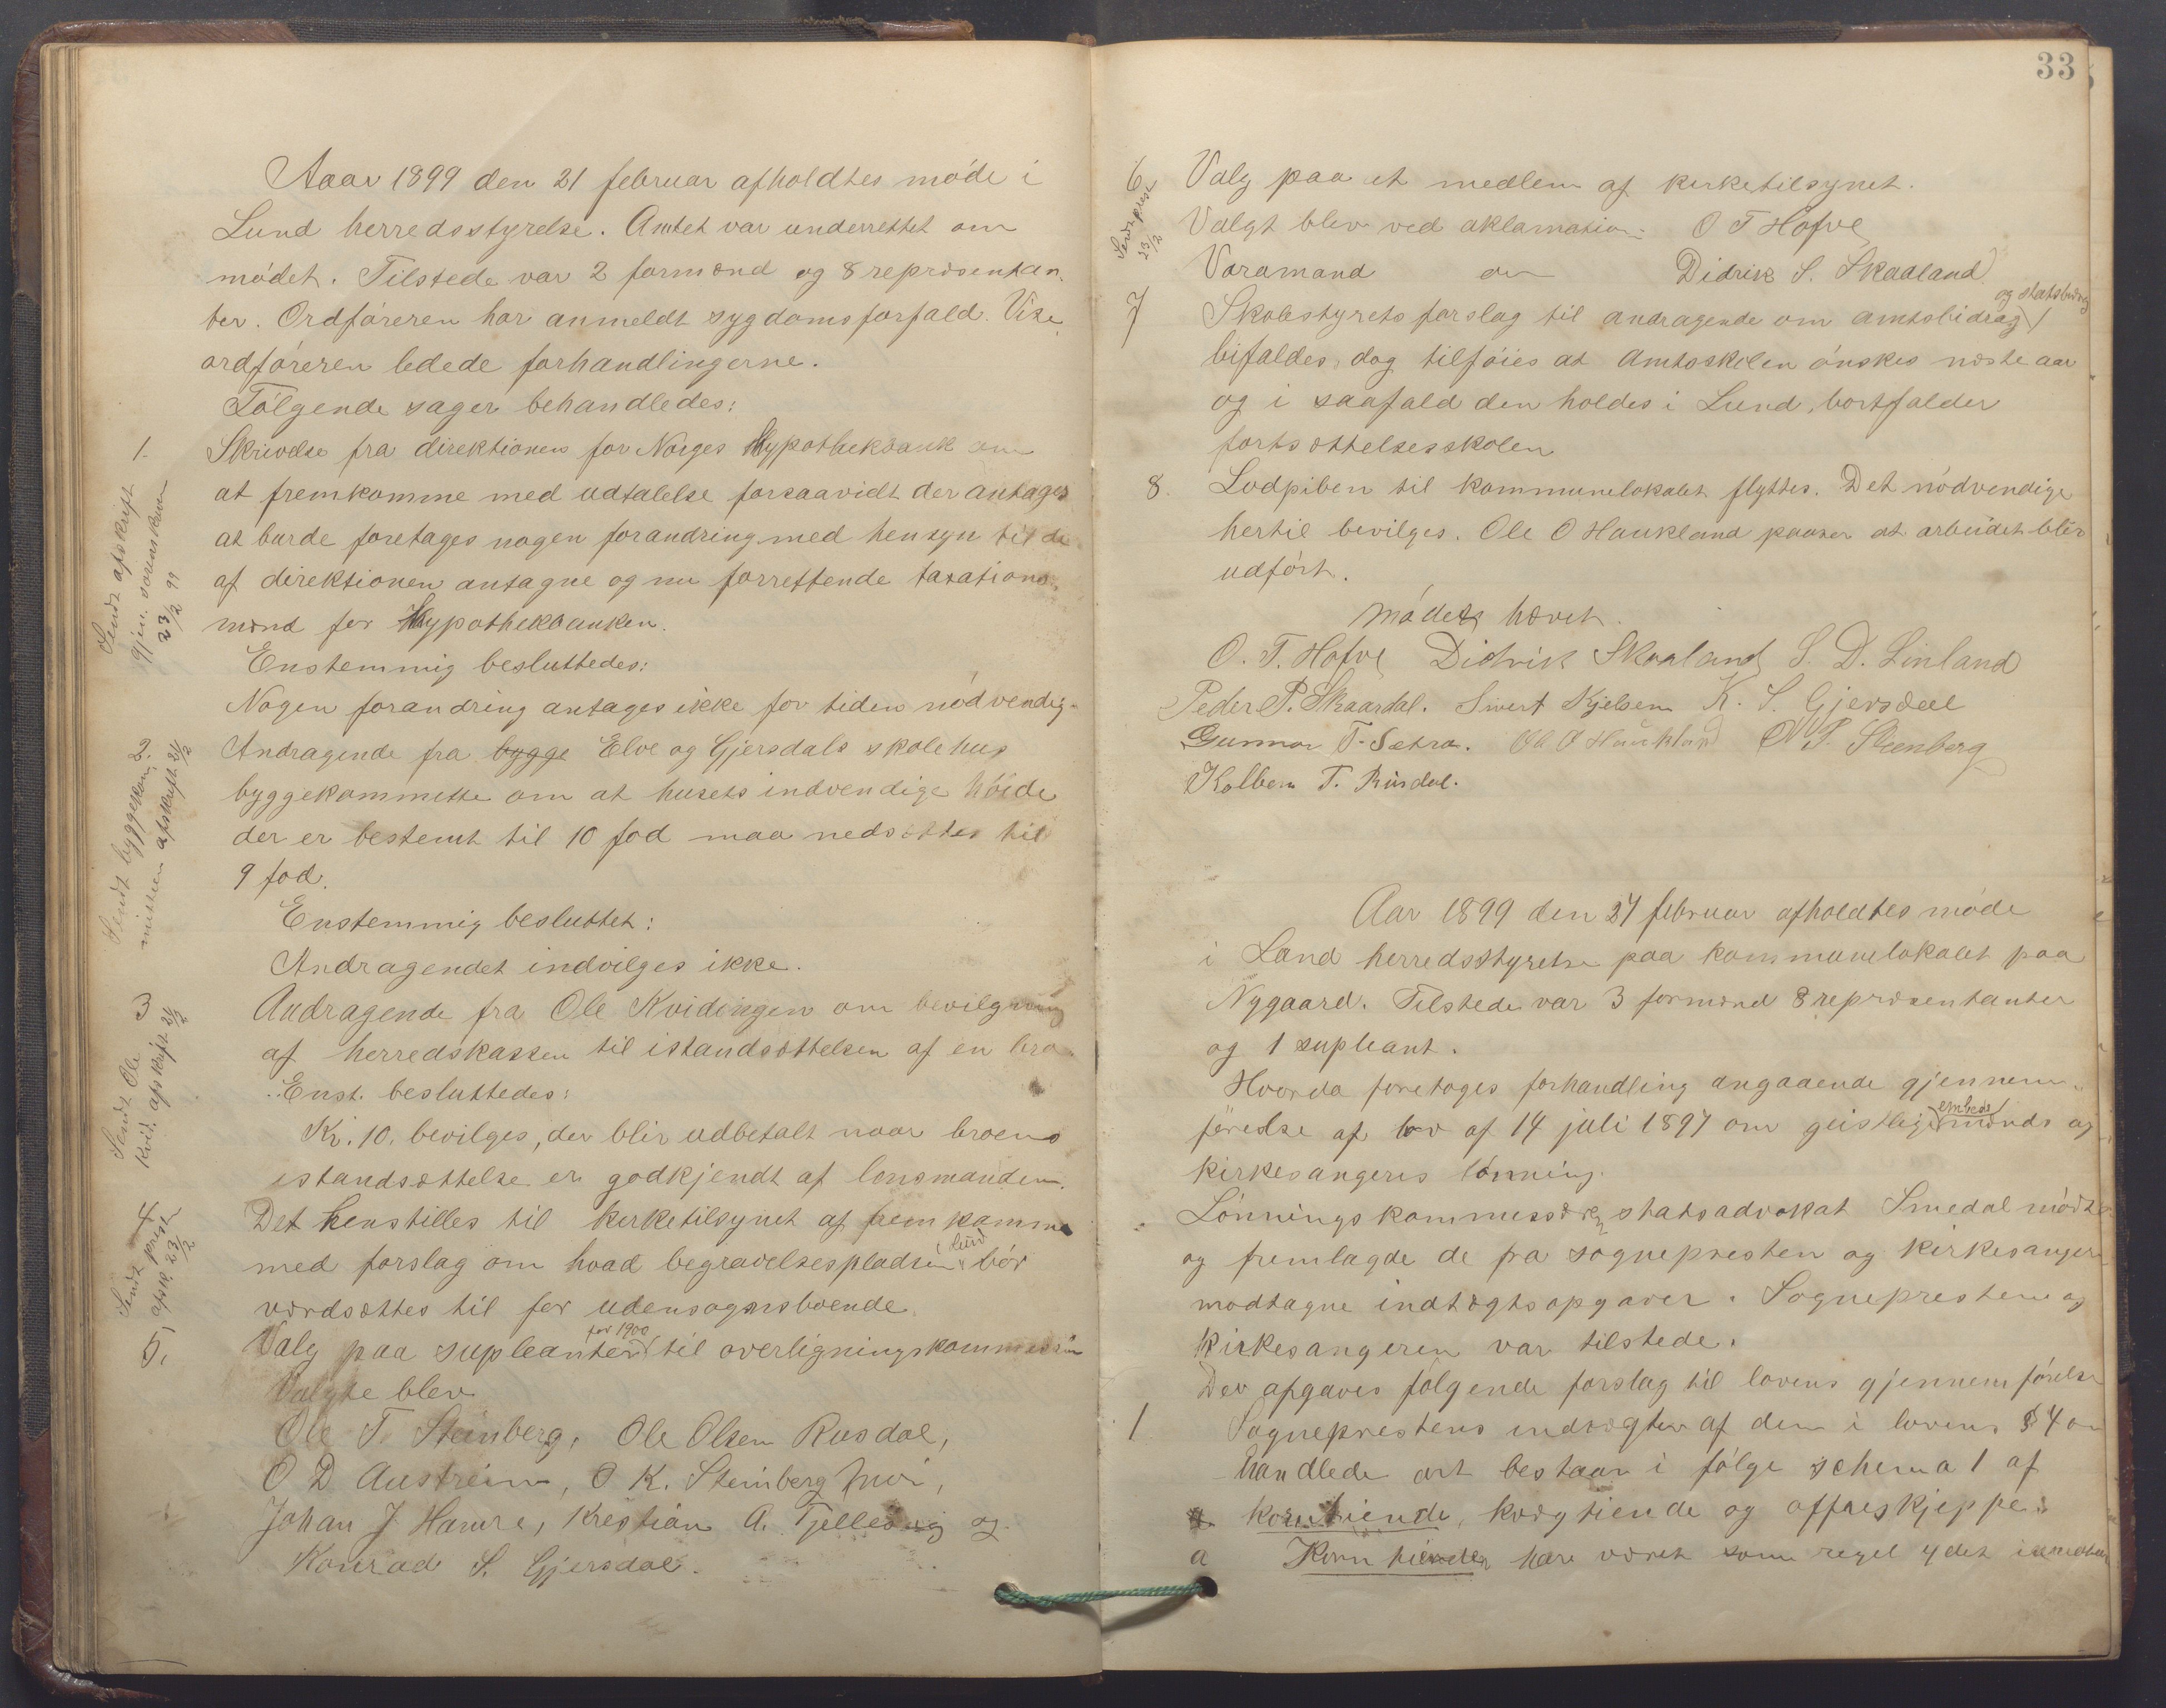 Aaar 1899 den 21 februar afholdtes møde i
Lund herredsstyrelse. Amtet var underrettet om
mødet. Tilstede var 2 formænd og 8 repræsentan-
ter. Ordføreren har anmeldt sygdomsforfald. Vise
ordføreren ledede forhandlingerne.
Følgende sager behandledes:
1. Skrivelse fra direktionen for Norges Hypothekbank om
at fremkomme med udtalelse forsaavidt der antages
at burde foretages nogen forandring med hensyn til de
af direktionen antagne og nu forrettende taxations
mænd for Hypothekbanken.
Sendt afskrift
gjen. sorenskriver
23/2 99
Enstemmig besluttedes:
Nogen forandring antages ikke for tiden nødvendig.
2. Andragende fra bygge Elve og Gjersdals skolehus
byggekommette om at husets indvendige høide
der er bestemt til 10 fod maa nedsættes til
9 fod.
Sendt byggekom
mitteen afskrift 24/2
Enstemmig besluttet:
Andragendet indvilges ikke.
3 Andragende fra Ole Kvidingen om bevilgning
af herredskassen til istandsættelsen af en bro.
Sendt Ole
Kvid. afskrift 24/2
Enst. besluttedes:
Kr. 10, bevilges, der blir udbetalt naar broens
istandsættelse er godkjendt af lensmanden.
4 Det henstilles til kerketilsynet at fremkomme
med forslag om hvad begravelsespladsen i Lund bør
værdsættes til for udensognsboende
Sendt prest
afsk. 23/2
5, Valg paa supleanter for 1900 til overligningskommission
Valgte blev
Ole T. Steinberg, Ole Olsen Rusdal,
O D Austreim, O K. Steinberg Moi,
Johan J Hamre, Kristian A. Fjellesvig og
Konrad S. Gjersdal.
33
6 Valg paa et medlem af kerketilsynet.
Valgt blev ved aklamation O T Hofve
Varamand Didrik S. Skaaland
Sendt prest
23/2
7 Skolestyrets forslag til andragende om amtsbidrag og statsbidrag
bifaldes, dog tilføies at Amtsskolen ønskes næste aar
og i saafald den holdes i Lund, bortfalder
fortsættelsesskolen
8. Lodpiben til kommunelokalet flyttes. Det nødvendige
hertil bevilges. Ole O Haukland paaser at arbeidet blir
udført.
Mødet hævet.
O. T. Hofve Didrik Skaaland S. D. Linland
Peder P. Skaardal. Sivert Kjelsen K. S. Gjersdal
Gunnar T. Sætra. Ole O Haukland O T. Steenberg
Kolben T. Rusdal.
Aar 1899 den 27 februar afholdtes møde
i Lund herredsstyrelse paa kommunelokalet paa
Nygaard. Tilstede var 3 formænd 8 repræsentanter
og 1 supleant.
Hvorda foretoges forhandling angaaende gjennem-
førelse af lov af 14 juli 1897 om geistlige embedsmænds og
kirkesangeres lønning.
Lønningskommissær, statsadvokat Smedal mødte
og fremlagde de fra sognepresten og kirkesanger
modtagne indtægtsopgaver. Sognepresten og
kirkesangeren var tilstede.
Der afgaves følgende forslag til lovens gjennemførelse
1 Sogneprestens indtægter af den i lovens § 4 om
handlede art bestaar i følge schema 1 af
korntiende, kvægtiende og offreskjeppe.
a Korntienden har været som regel ydet